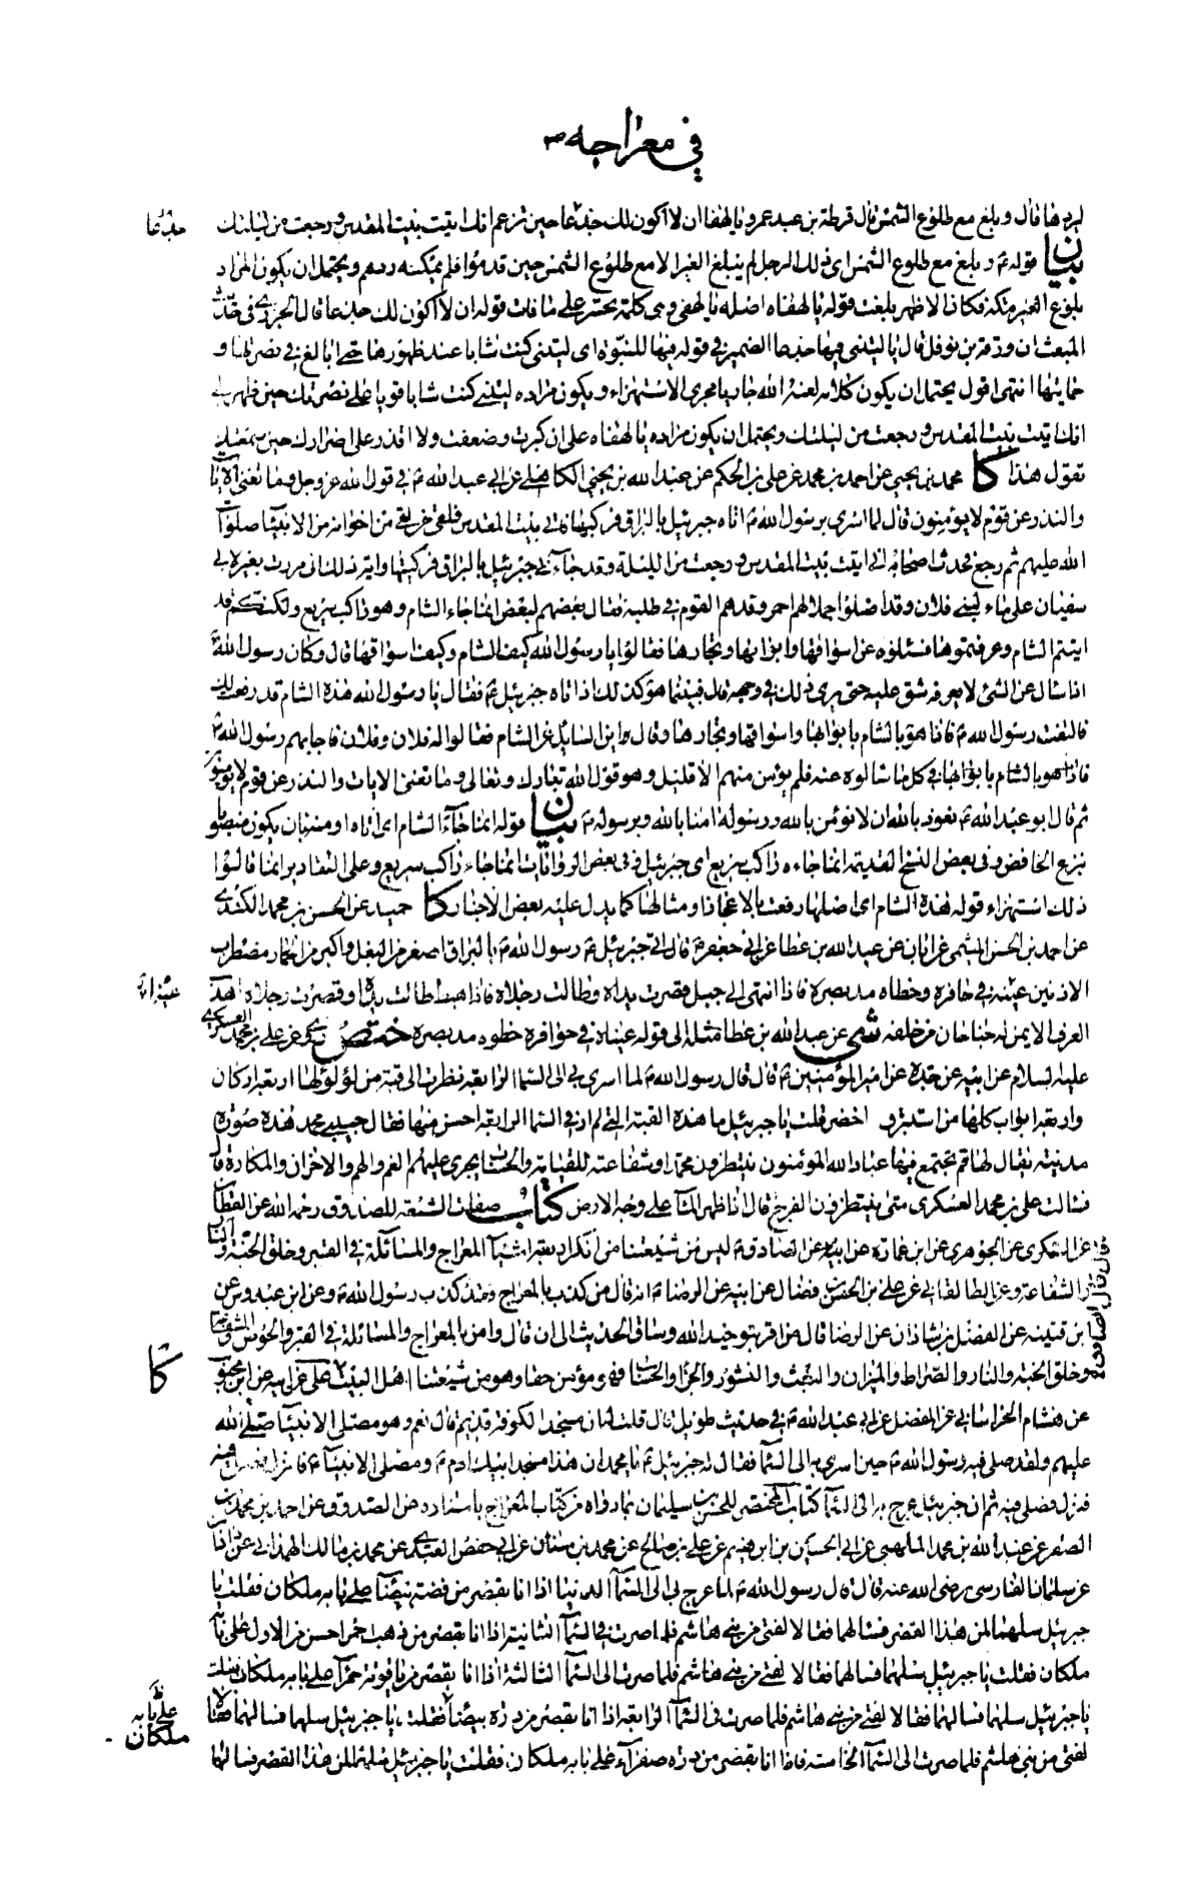 في معراجه ص
قال وبلغ مع طلوع الشمس قال قرطة بن عبد عمرو يا لهفا ان لا اكون لك جذعا حين تزعم انك اتيت بيت المقدس ورجعت من ليلتك
جذعا
بيان قوله وبلغ مع طلوع الشمس اى ذلك الرجل لم يبلغ العير الا مع طلوع الشمس حين قدموا فلم يمكنه ردهم ويحتمل ان يكون المراد
بلوغ العير مكة فكان الاظهر بلغت قوله يا لهفاه اصله يا لهفى وهى كلمة تحسر على ما فات قوله ان لا اكون لك جذعا قال الجزري في حديث
المبعث ان ورقة بن نوفل قال يا ليتني فيها جذعا الضمير في قوله فيها للنبوة اى ليتنى كنت شابا عند ظهورها حتى ابالغ في نصرتها و
حمايتها انتهى اقول يحتمل ان يكون كلامه لعنه الله جاريا مجرى الاستهزاء ويكون مراده ليتنى كنت شابا قويا على نصرتك حين ظهر لى
انك اتيت بيت المقدس ورجعت من ليلتك ويحتمل ان يكون مراده يا لهفاه على ان كبرت وضعفت ولا اقدر على اضرارك حين سمعتك
تقول هذا كا محمد بن يحيى عن احمد بن محمد عن على بن الحكم عن عبد الله بن يحيى الكاهلى عن ابي عبد الله ع في قول الله عز وجل وما تغنى الآيات
والنذر عن قوم لا يؤمنون قال لما اسرى برسول الله ص اتاه جبرئيل بالبراق فركبها فاتى بيت المقدس فلقى من لقى من اخوانه من الانبياء صلوات
الله عليهم ثم رجع فحدث اصحابه انى اتيت بيت المقدس ورجعت من الليلة وقد جاءنى جبرئيل بالبراق فركبتها واية ذلك انى مررت بعير لابى
سفيان على ماء لبنى فلان وقد اضلوا جملا لهم احمر وقد هم القوم في طلبه فقال بعضهم لبعض انما جاء الشام وهو راكب سريع ولكنكم قد
اتيتم الشام وعرفتموها فسئلوه عن اسواقها وابوابها وتجارها فقالوا يا رسول الله كيف الشام وكيف اسواقها قال وكان رسول الله ص
اذا سئل عن الشئ لا يعرفه شق عليه حتى يرى ذلك في وجهه قال فبينما هو كذلك اذ اتاه جبرئيل ع فقال يا رسول الله هذه الشام قد رفعت لك
فالتفت رسول الله ص فاذا هو بالشام بابوابها واسواقها وتجارها وقال اين السائل عن الشام فقالوا له فلان وفلان فاجابهم رسول الله ص
في كل ما سالوه عنه فلم يؤمن منهم الا قليل وهو قول الله تبارك وتعالى وما تغنى الايات والنذر عن قوم لا يؤمنون
ثم قال ابو عبد الله ع نعوذ بالله ان لا نؤمن بالله ورسوله امنا بالله وبرسوله ص بيان قوله انما جاء الشام اى اتاه او منه بان يكون منصوبا
بنزع الخافض وفى بعض النسخ القديمة انما جاءه راكب سريع اى جبرئيل وفى بعض الروايات انما جاء راكب سريع وعلى التقادير انما قالوا
ذلك استهزاء قوله هذه الشام اى اصلها رفعت بالاعجاز او مثالها كما يدل عليه بعض الاخبار كا حميد عن الحسن بن محمد الكندي
عن احمد بن الحسن الميثمى عن ابان عن عبد الله بن عطا عن ابى جعفر ع قال اتى جبرئيل ع رسول الله ص بالبراق اصغر من البغل واكبر من الحمار مضطرب
الاذنين عينيه في حافره وخطاه مد بصره فاذا انتهى الى جبل قصرت يداه وطالت رجلاه فاذا هبط طالت يداه وقصرت رجلاه اهدب
العرف الايمن له جناحان من خلفه شى عن عبد الله بن عطا مثله الى قوله عيناه في حوافره خطوه مد بصره ختص روى عن على بن محمد العسكرى
عليه السلام عن ابيه عن جده عن امير المؤمنين ع قال قال رسول الله ص لما اسرى بى الى السماء الرابعة نظرت الى قبة من لؤلؤ لها اربعة اركان
واربعة ابواب كلها من استبرق اخضر قلت يا جبرئيل ما هذه القبة التى لم ار في السماء الرابعة احسن منها فقال حبيبى محمد هذه صورة
مدينة يقال لها قم يجتمع فيها عباد الله المؤمنون ينتظرون محمدا وشفاعته للقيامة والحساب يجرى عليهم الغم والهم والاحزان والمكاره قال
فسالت على بن محمد العسكرى متى ينتظرون الفرج قال اذا ظهر الماء على وجه الارض كتاب صفات الشيعة للصدوق رحمه الله عن القطان
عن السكرى عن الجوهرى عن ابن عمارة عن ابيه عن الصادق ع ليس من شيعتنا من انكر اربعة اشياء المعراج والمسائلة في القبر وخلق الجنة والنار
والشفاعة وعن الطالقانى عن على بن الحسن بن فضال عن ابيه عن الرضا ع انه قال من كذب بالمعراج فقد كذب رسول الله ص وعن ابن عبدوس عن
ابن قتيبة عن الفضل بن شاذان عن الرضا قال من اقر بتوحيد الله وساق الحديث الى ان قال وامن بالمعراج والمسائلة في القبر والحوض والشفاعة
وخلق الجنة والنار والصراط والميزان والبعث والنشور والجزاء والحساب فهو مؤمن حقا وهو من شيعتنا اهل البيت على عن ابيه عن ابن محبوب
كا
عن هشام الخراسانى عن المفضل عن ابى عبد الله ع في حديث طويل قال قلت له ان مسجد الكوفة قديم قال نعم وهو مصلى الانبياء صلى الله
عليهم ولقد صلى فيه رسول الله ص حين اسرى به الى السماء فقال له جبرئيل ع يا محمد ان هذا مسجد ابيك ادم ع ومصلى الانبياء ع فانزل فصل فيه
فنزل فصلى فيه ثم ان جبرئيل عرج به الى السماء كتاب المحتضر للحسن بن سليمان مما رواه من كتاب المعراج باسناده عن الصدوق عن احمد بن محمد بن
الصقر عن عبد الله بن محمد المهلبى عن ابى الحسين بن ابراهيم عن على بن صالح عن محمد بن سنان عن ابى حفص العبدى عن محمد بن مالك الهمدانى عن زاذان
عن سلمان الفارسى رضى الله عنه قال قال رسول الله ص لما عرج بى الى السماء الدنيا اذا انا بقصر من فضة بيضاء على بابه ملكان فقلت يا
جبرئيل سلهما لمن هذا القصر فسالهما فقالا لفتى من بنى هاشم فلما صرت في السماء الثانية اذا انا بقصر من ذهب احمر احسن من الاول على بابه
ملكان فقلت يا جبرئيل سلهما فسالهما فقالا لفتى من بنى هاشم فلما صرت الى السماء الثالثة اذا انا بقصر من ياقوتة حمراء على بابه ملكان فقلت
يا جبرئيل سلهما فسالهما فقالا لفتى من بنى هاشم فلما صرت فى السماء الرابعة اذا انا بقصر من درة بيضاء فقلت يا جبرئيل سلهما فسالهما فقالا
على بابه
ملكان
لفتى من بنى هاشم فلما صرت الى السماء الخامسة فاذا انا بقصر من درة صفراء على بابه ملكان فقلت يا جبرئيل سلهما لمن هذا القصر فسالهما